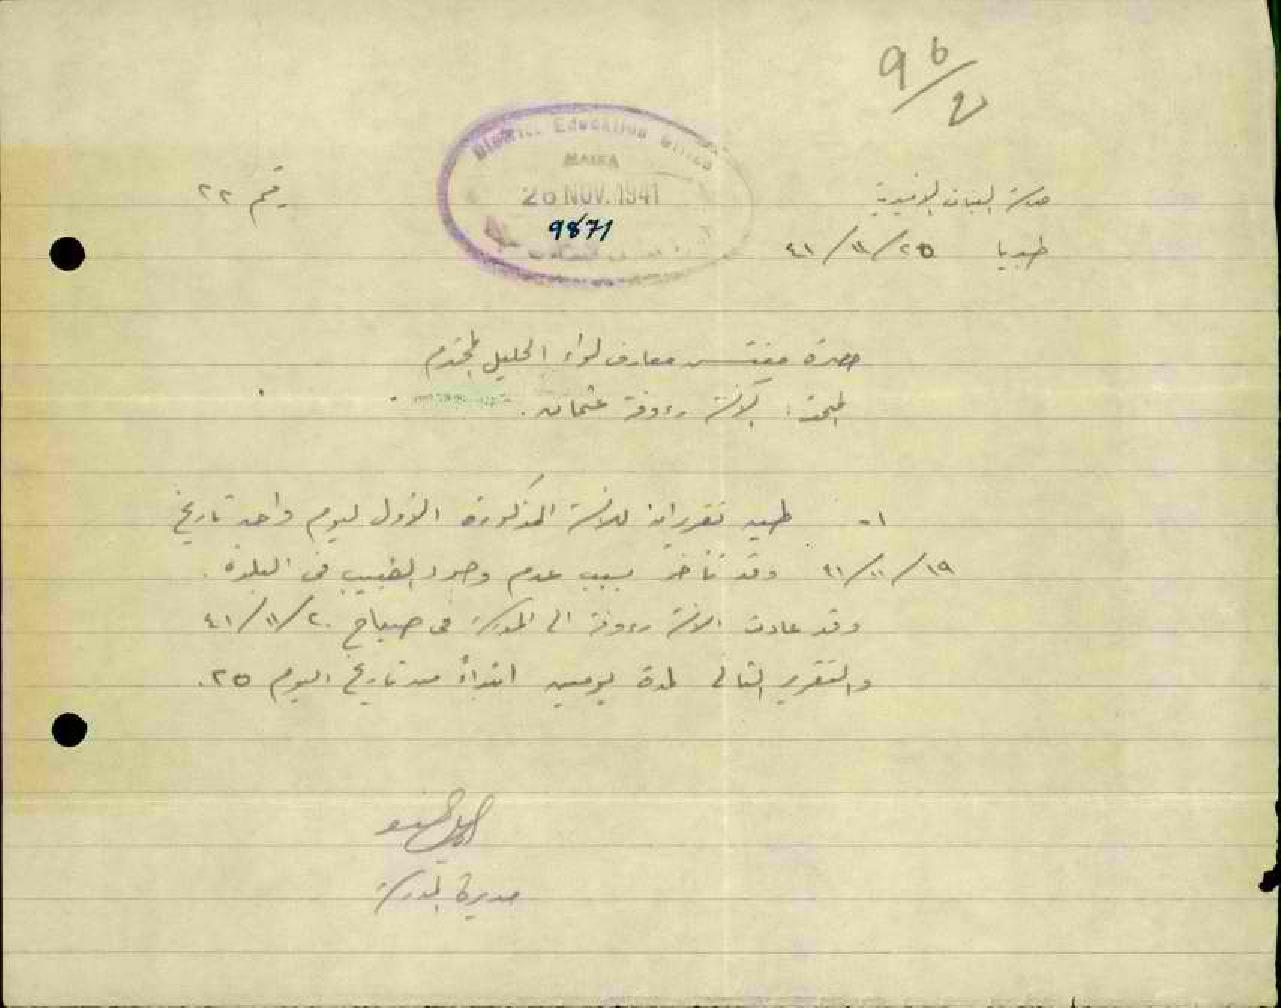 96/2
District Education Office
HAIFA
26 NOV. 1941
9871
مدرسة البنات الاميرية
رقم ٢٢
طبريا ٢٥/١١/٤١
حضرة مفتش معارف لواء الجليل المحترم
المبحث: الآنسة رءوفة عثمان.
١- طيه تقريران للانسة المذكورة الاول ليوم واحد تاريخ
١٩/١١/٤١ وقد تأخر بسبب عدم وجود الطبيب في البلدة.
وقد عادت الانسة رءوفة الى المدرسة في صباح ٢٠/١١/٤١
والتقرير الثاني لمدة يومين ابتداءً من تاريخ اليوم ٢٥.
مديرة المدرسة